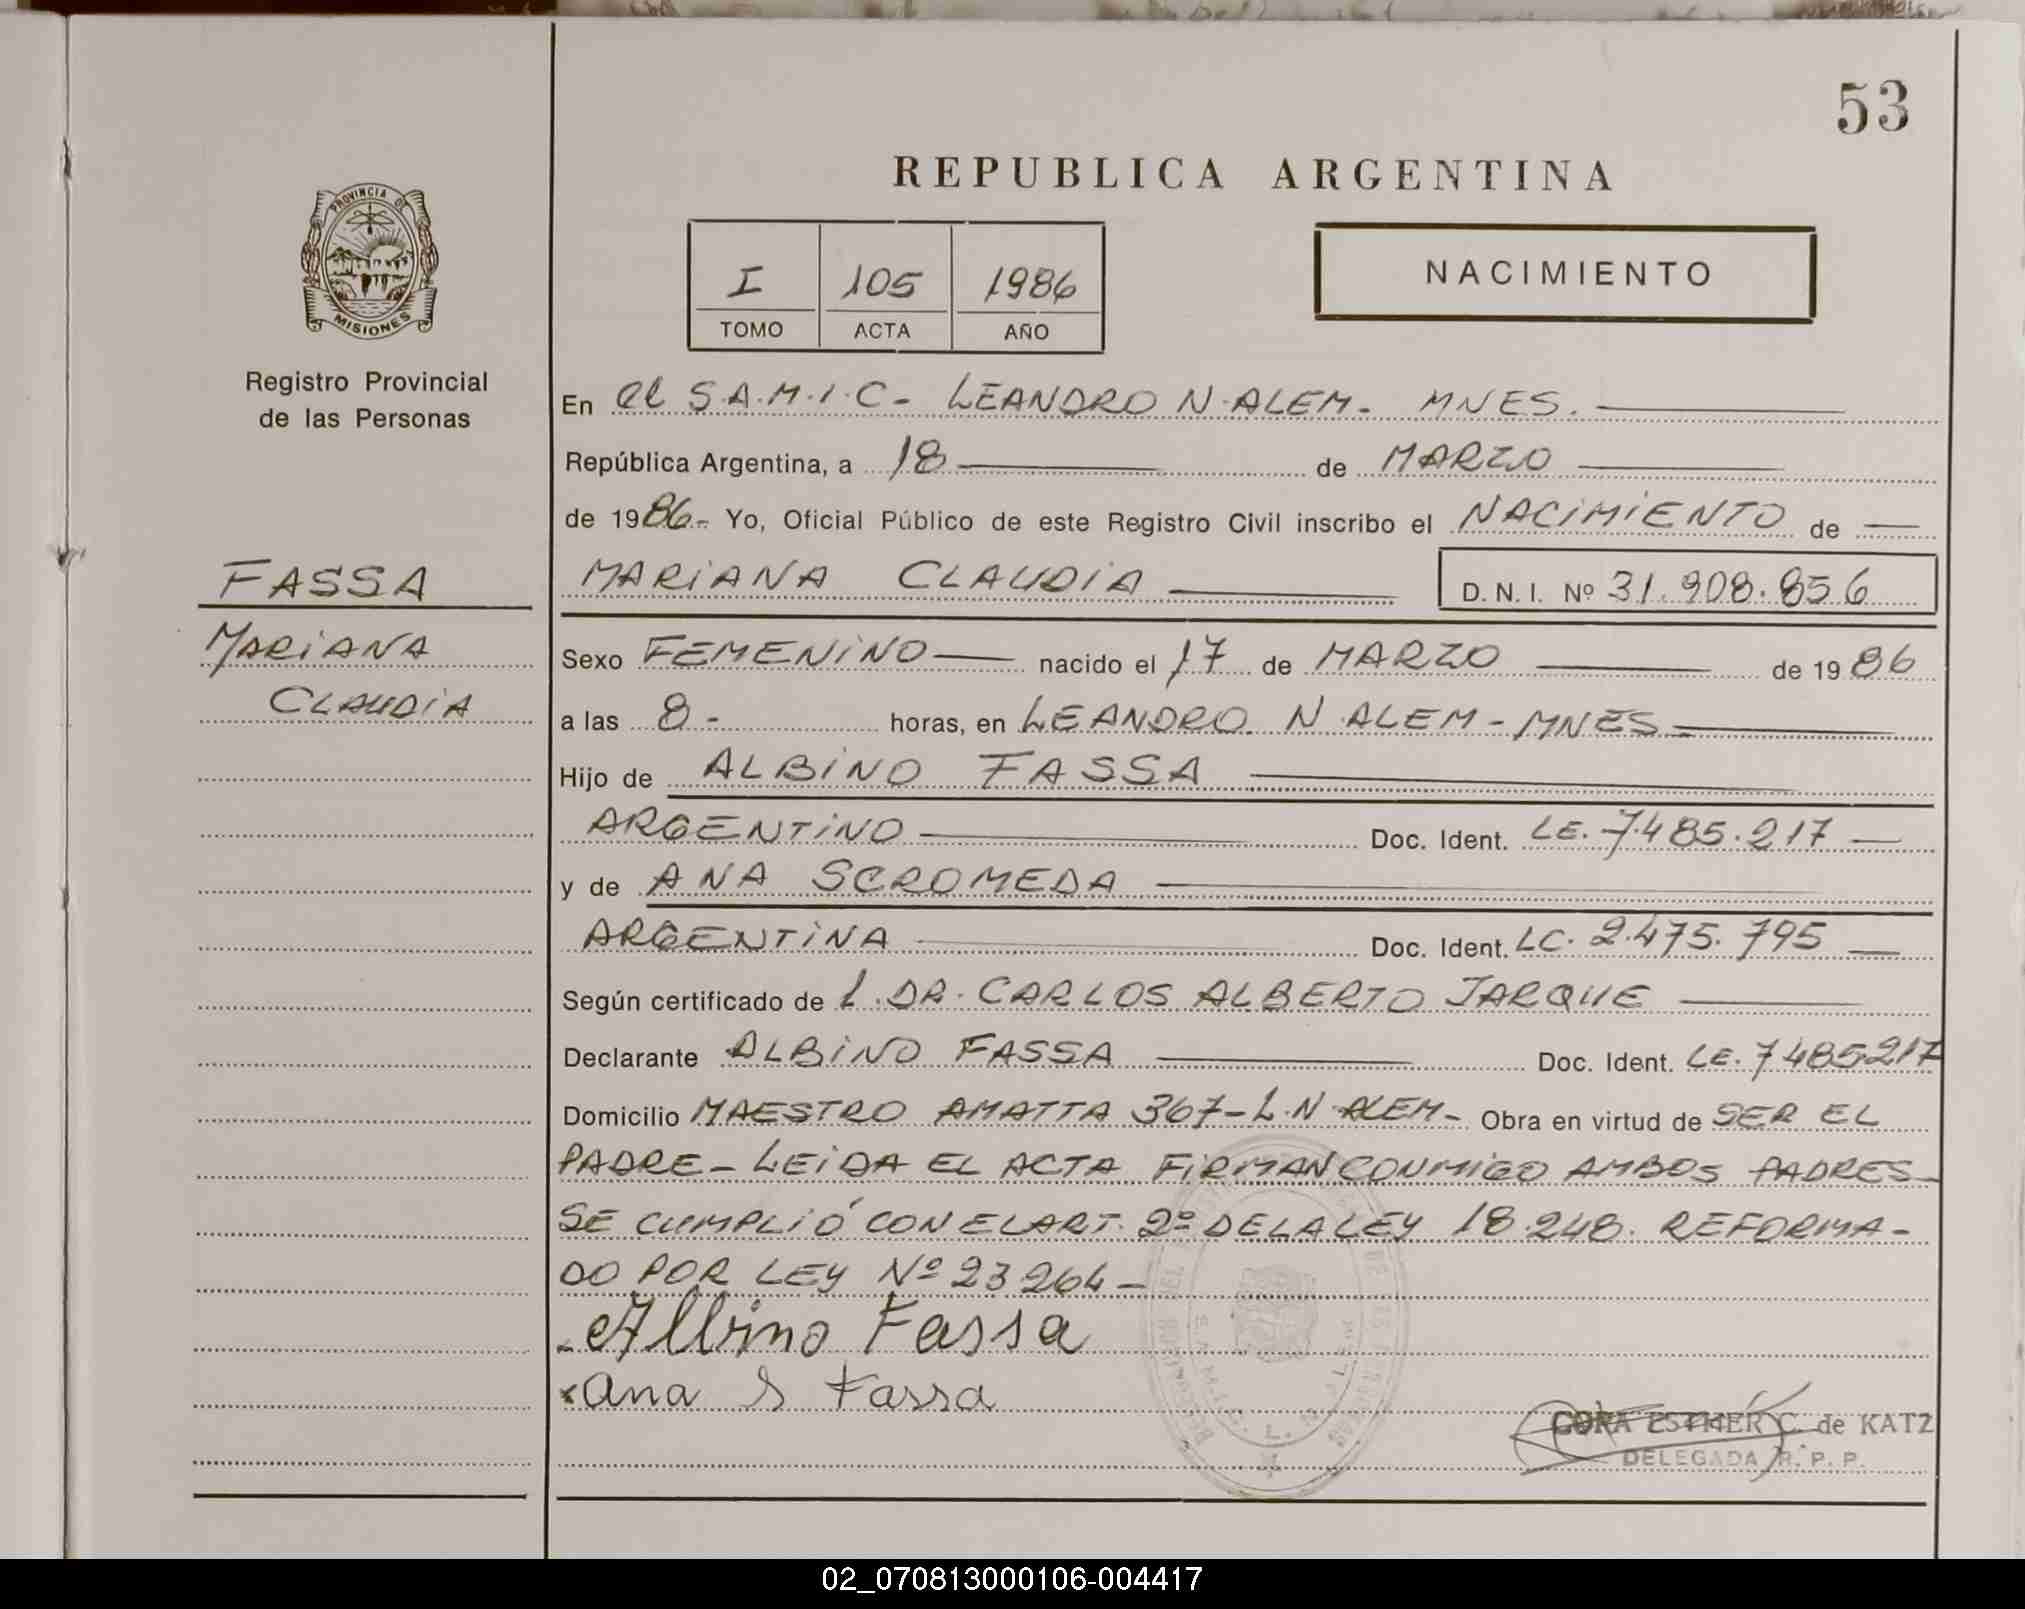 53
REPUBLICA ARGENTINA
PROVINCIA DE
MISIONES
Registro Provincial
de las Personas
I 105 1986
TOMO ACTA AÑO
NACIMIENTO
En el S.A.M.I.C- LEANDRO N.ALEM- MNES.
República Argentina, a 18 de MARZO
de 1986- Yo, Oficial Público de este Registro Civil inscribo el NACIMIENTO de
FASSA
MARIANA CLAUDIA D.N.I. Nº 31.908.856
MARIANA
CLAUDIA
Sexo FEMENINO nacido el 17 de MARZO de 1986
a las 8- horas, en LEANDRO N ALEM - MNES-
Hijo de ALBINO FASSA
ARGENTINO Doc. Ident. LE. 7.485.217
y de ANA SCROMEDA
ARGENTINA Doc. Ident. LC. 2.475.795
Según certificado de L.DR. CARLOS ALBERTO JARQUE
Declarante ALBINO FASSA Doc. Ident. LE. 7485217
Domicilio MAESTRO AMATTA 367-L.N.ALEM- Obra en virtud de SER EL
PADRE- LEIDA EL ACTA FIRMAN CONMIGO AMBOS PADRES-
SE CUMPLIÓ CON EL ART. 2º DE LA LEY 18.248. REFORMA-
DO POR LEY Nº 23264-
Albino Fassa
x Ana S Fassa
CORA ESTHER C. de KATZ
DELEGADA R. P. P.
02_070813000106-004417